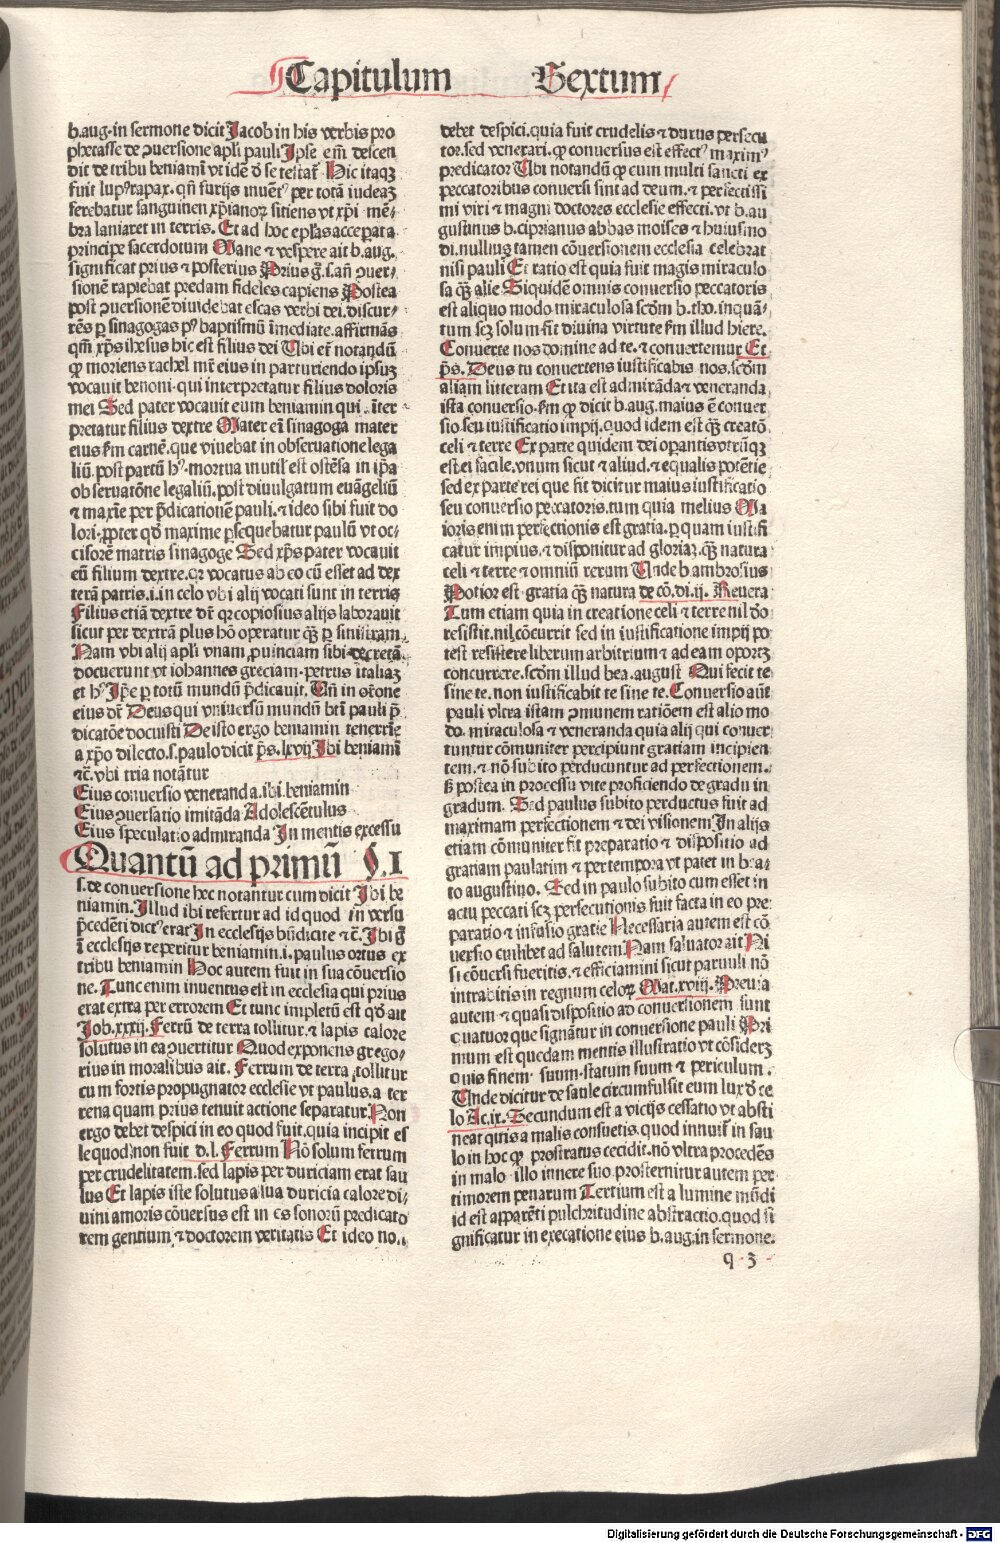 Capitulum Sextum
b.aug.in sermone dicit Jacob in his verbis pro
phetasse de ꝯuersione apli pauli Ipse em̄ descen
dit de tribu beniamī vt idē d̄ se testat᷑ Hic itaqꝫ
fuit lupꝰrapax.qn̄ furijs inuēt᷑ per totā iudeaꝫ
ferebatur sanguinen xp̄ianoꝝ sitiens vt xp̄i mē⸗
bra laniaret in terris. Et ad hoc ep̄las accepat a
principe sacerdotum Mane ⁊ vespere ait b.aug.
significat prius ⁊ posterius Prius g̊.s.an̄ ꝯuer⸗
sionē rapiebat predam fideles capiens Postea
post ꝯuersionē diuidebat escas verbi dei.discur⸗
rēs ꝑ sinagogas pꝰ baptismū īmediate.affirmās
qm̄ xp̄s ihesus hic est filius dei Ubi et᷑ notandū
ꝙ moriens rachel mr̄ eius in parturiendo ipsuꝫ
vocauit benoni.qui interpretatur filius doloris
mei Sed pater vocauit eum beniamin qui.īter⸗
pretatur filius dextre Mater em̄ sinagoga mater
eius f̄m carnē.que viuebat in obseruatione lega
liū.post partū hꝰ.mortua inutil᷑ est ostēsa in ip̄a
obseruatōne legaliū.post diuulgatum euāgeliū
⁊ maxīe per p̄dicationē pauli.⁊ ideo sibi fuit do
lori.ꝓpter qd̄ maxime ꝑsequebatur paulū vt oc⸗
cisorē matris sinagoge Sed xp̄s pater vocauit
eū filium dextre.qr vocatus ab eo cū esset ad dex
terā patris.i.in celo vbi alij vocati sunt in terris
Filius etiā dextre dr̄ qr copiosius alijs laborauit
sicut per dextrā plus hō operatur qꝫ̄ ꝑ sinistram
Nam vbi alij apli vnam ꝓuinciam sibi decretā
docuerunt vt iohannes greciam.petrus italiaꝫ
et hꝰ Ip̄e ꝑ totū mundū p̄dicauit. Un̄ in or̄one
eius dr̄ Deus qui vniuersū mundū bt̄i pauli p̄
dicatōe docuisti De isto ergo beniamin tenerr̄īe
a xp̄o dilecto.s.paulo dicit p̄s.lxvij Ibi beniamī
⁊c̄.vbi tria notātur
Eius conuersio veneranda.ibi.beniamin
Eius ꝯuersatio imitāda Adolescētulus
Eius speculatio admiranda In mentis excessu
Quantū ad primū §.I
s.de conuersione hec notantur cum dicit Ibi be
niamin.Illud ibi refertur ad id quod in versu
p̄cedēti dictꝰerat In ecclesijs bn̄dicite ⁊c̄.Ibi g̊
ī ecclesijs reperitur beniamin.i.paulus ortus ex
tribu beniamin Hoc autem fuit in sua cōuersio
ne. Tunc enim inuentus est in ecclesia qui prius
erat extra per errorem Et tunc impletū est qd̄ ait
Job.xxxij.Ferrū de terra tollitur.⁊ lapis calore
solutus in ea ꝯuertitur Quod exponens grego⸗
rius in moralibus ait. Ferrum de terra tollitur
cum fortis propugnator ecclesie vt paulus.a ter
rena quam prius tenuit actione separatur.Non
ergo debet despici in eo quod fuit.quia incipit es
se quod non fuit d.l. Ferrum Nō solum ferrum
per crudelitatem.sed lapis per duriciam erat sau
lus Et lapis iste solutus a sua duricia calore di⸗
uini amoris cōuersus est in es sonorū predicato
rem gentium.⁊ doctorem veritatis Et ideo no..
debet despici.quia fuit crudelis ⁊ durus persecu
tor.sed venerari.ꝙ conuersus est effectꝰ maximꝰ
predicator Ubi notandū ꝙ cum multi sancti ex
peccatoribus conuersi sint ad deum.⁊ perfectissi
mi viri ⁊ magni doctores ecclesie effecti.vt b.au
gustinus b.ciprianus abbas moises ⁊ huiusmo
di.nullius tamen cōuersionem ecclesia celebrat
nisi pauli Et ratio est quia fuit magis miraculo
sa qꝫ̄ alie Siquidē omnis conuersio peccatoris
est aliquo modo miraculosa scd̄m b.tho.inquā⸗
tum scꝫ solum fit diuina virtute f̄m illud hiere.
Conuerte nos domine ad te.⁊ conuertemur Et
p̄s. Deus tu conuertens iustificabis nos.scd̄m
aliam litteram Et ita est admirāda⁊ veneranda
ista conuersio.f̄m ꝙ dicit b.aug.maius ē conuer
sio.seu iustificatio impij.quod idem est qꝫ̄ creatō
celi ⁊ terre Ex parte quidem dei opantis vtrūqꝫ
est ei facile.vnum sicut ⁊ aliud.⁊ equalis potētie
sed ex parte rei que fit dicitur maius iustificatio
seu conuersio peccatoris.tum quia melius Ma
ioris enim perfectionis est gratia.ꝑ quam iustifi
catur impius.⁊ disponitur ad gloriaꝫ.qꝫ̄ natura
celi ⁊ terre ⁊ omniū rerum Unde b.ambrosius
Potior est gratia qꝫ̄ natura de cō.di.ij. Reuera
Tum etiam quia in creatione celi ⁊ terre nil do
resistit.nil cōcurrit sed in iustificatione impij po
test resistere liberum arbitrium ⁊ ad eam oportꝫ
concurrere.scd̄m illud bea.august Qui fecit te
sine te.non iustificabit te sine te.Conuersio aūt
pauli vltra istam ꝯmunem ratiōem est alio mo
do.miraculosa ⁊ veneranda quia alij qui conuer
tuntur cōmuniter percipiunt gratiam incipien
tem.⁊ nō subito perducuntur ad perfectionem.
ß postea in processu vite proficiendo de gradu in
gradum. Sed paulus subito perductus fuit ad
maximam perfectionem ⁊ dei visionem In alijs
etiam cōmuniter fit preparatio ⁊ dispositio ad
gratiam paulatim ⁊ per tempora vt patet in bea⸗
to augustino. Sed in paulo subito cum esset in
actu peccati scꝫ persecutionis fuit facta in eo pre
paratio ⁊ infusio gratie Necessaria autem est cō
uersio cuilibet ad salutem Nam saluator ait Ni
si cōuersi fueritis.⁊ efficiamini sicut paruuli nō
intrabitis in regnum celoꝝ Mat.xviij. Preuia
autem ⁊ quasi dispositio ad conuersionem sunt
quatuor que signātur in conuersione pauli Pri
mum est quedam mentis illustratio vt cōsiderꝫ
quis finem suum.statum suum ⁊ periculum.
Unde dicitur de saule circumfulsit eum lux d̄ ce
lo Ac.ix. Secundum est a vicijs cessatio vt absti
neat quis a malis consuetis.quod innuit᷑ in sau
lo in hoc ꝙ prostratus cecidit.nō vltra procedēs
in malo illo itinere suo.prosternitur autem per
timorem penarum Tertium est a lumine mūdi
id est apparēti pulchritudine abstractio.quod si
gnificatur in execatione eius b.aug.in sermone.
q 3
Digitalisierung gefördert durch die Deutsche Forschungsgemeinschaft - DFG